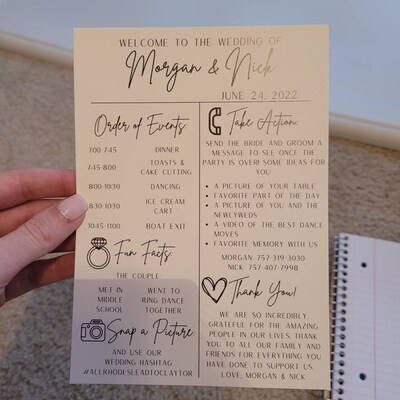 WELCOME TO THE WEDDING OF
Morgan & Nick
JUNE 24, 2022
Order of Events
7:00-7:45 DINNER
7:45-8:00 TOASTS &
CAKE CUTTING
8:00-10:30 DANCING
8:30-10:30 ICE CREAM
CART
10:45-11:00 BOAT EXIT
Fun Facts
THE COUPLE:
MET IN
MIDDLE
SCHOOL
WENT TO
RING DANCE
TOGETHER
Snap a Picture
AND USE OUR
WEDDING HASHTAG
#ALLRHODESLEADTOCLAYTOR
Take Action
SEND THE BRIDE AND GROOM A
MESSAGE TO SEE ONCE THE
PARTY IS OVER! SOME IDEAS FOR
YOU
• A PICTURE OF YOUR TABLE
• FAVORITE PART OF THE DAY
• A PICTURE OF YOU AND THE
NEWLYWEDS
• A VIDEO OF THE BEST DANCE
MOVES
• FAVORITE MEMORY WITH US
MORGAN: 757-319-3030
NICK: 757-407-7998
Thank You!
WE ARE SO INCREDIBLY
GRATEFUL FOR THE AMAZING
PEOPLE IN OUR LIVES. THANK
YOU TO ALL OUR FAMILY AND
FRIENDS FOR EVERYTHING YOU
HAVE DONE TO SUPPORT US.
LOVE, MORGAN & NICK